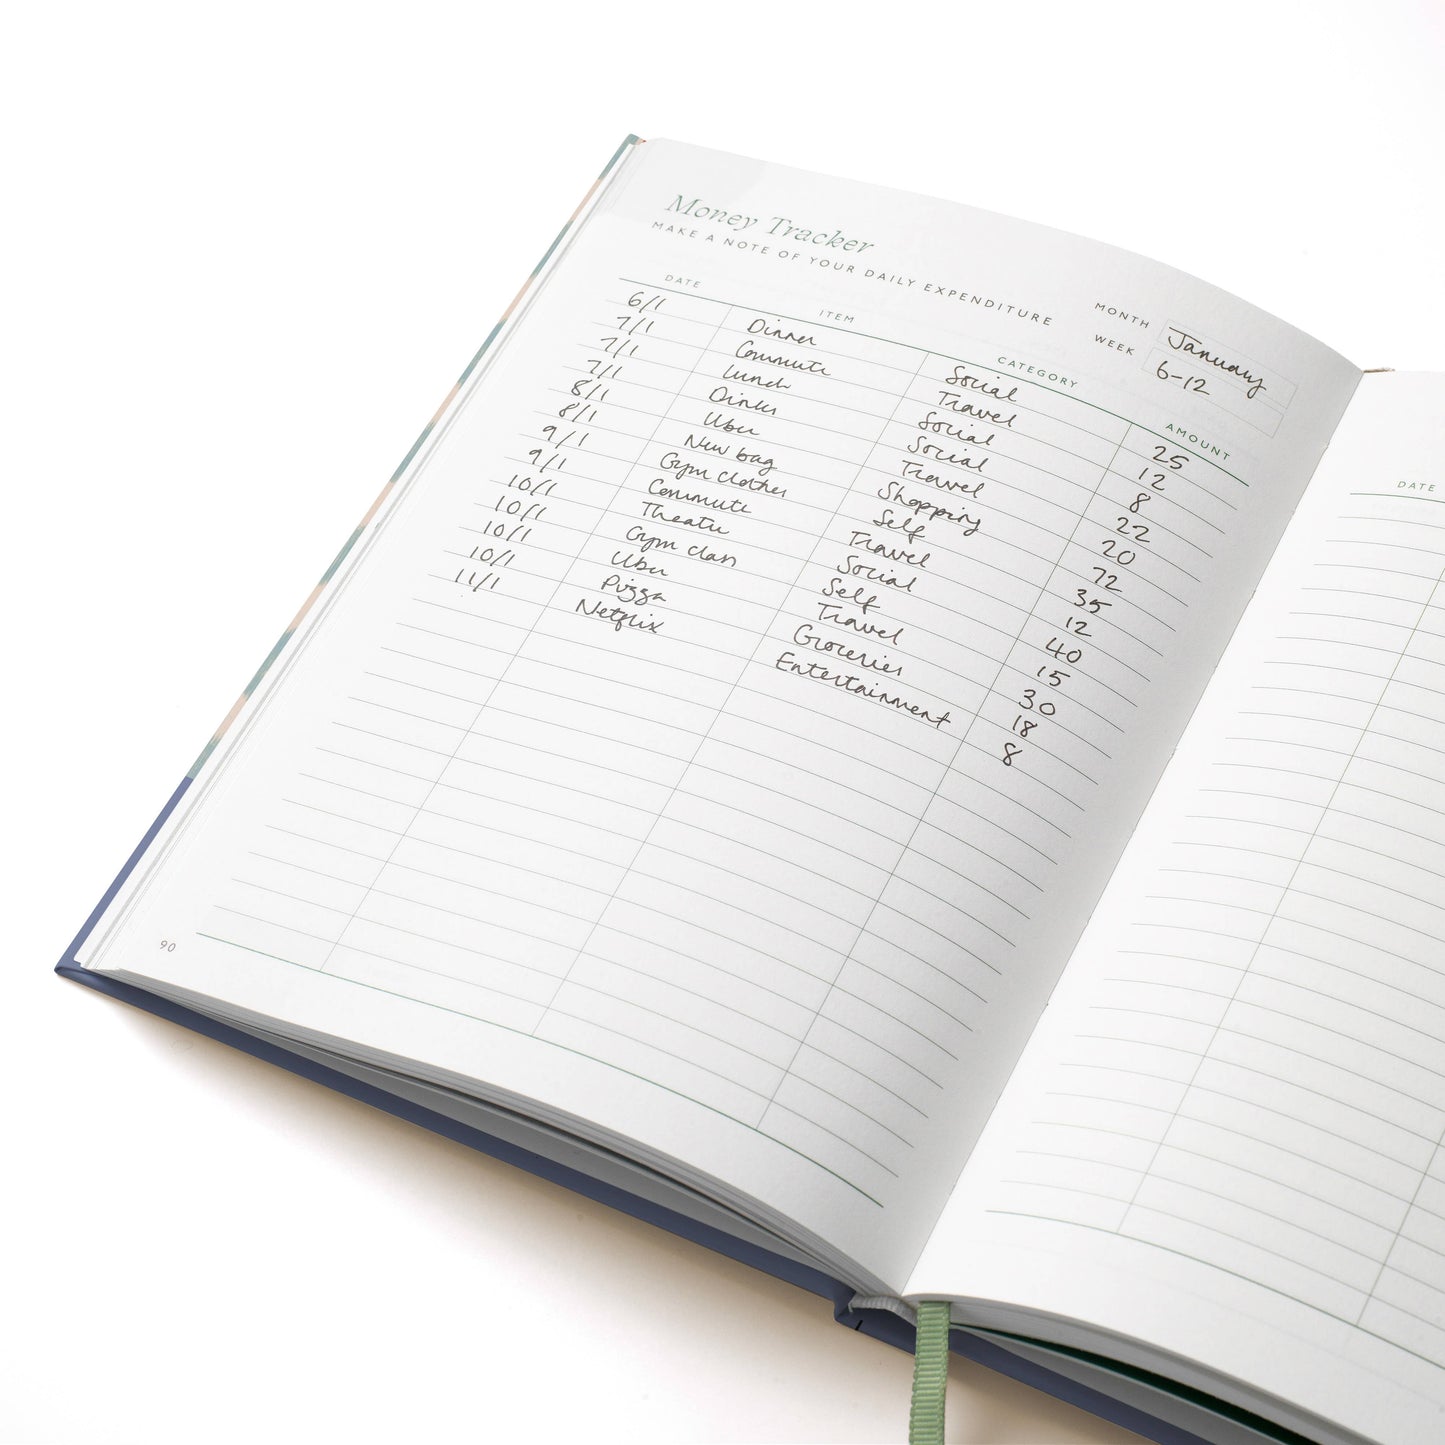 Money Tracker
MAKE A NOTE OF YOUR DAILY EXPENDITURE
MONTH January
WEEK 6-12
DATE ITEM CATEGORY AMOUNT
6/1 Dinner Social 25
7/1 Commute Travel 12
7/1 Lunch Social 8
7/1 Dinner Social 22
8/1 Uber Travel 20
8/1 New bag Shopping 72
9/1 Gym clothes Self 35
9/1 Commute Travel 12
10/1 Theatre Social 40
10/1 Gym class Self 15
10/1 Uber Travel 30
10/1 Pizza Groceries 18
11/1 Netflix Entertainment 8
90
DATE